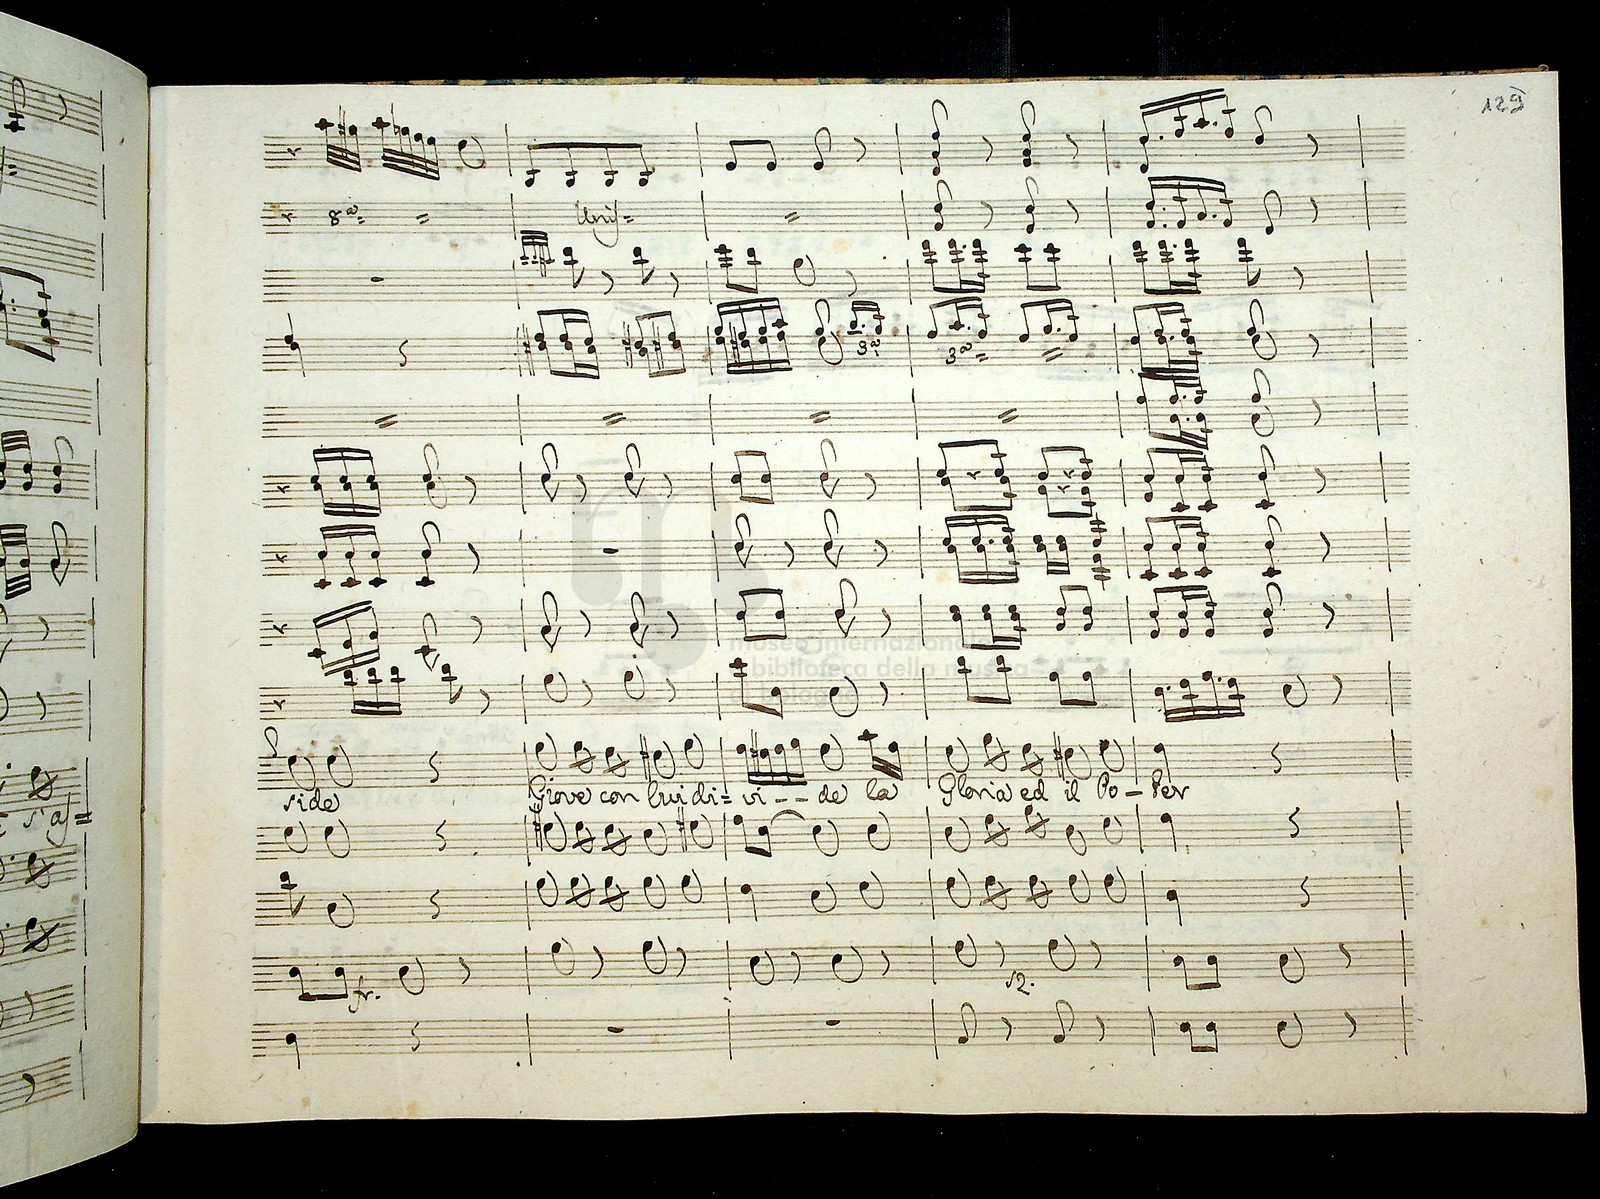 129
8a= =
Unis=
3a=
3a=
side Giove con lui di= vi -- de la Gloria ed il Po - ter
s'as=
fr.
museo internazionale
biblioteca della musica
di bologna